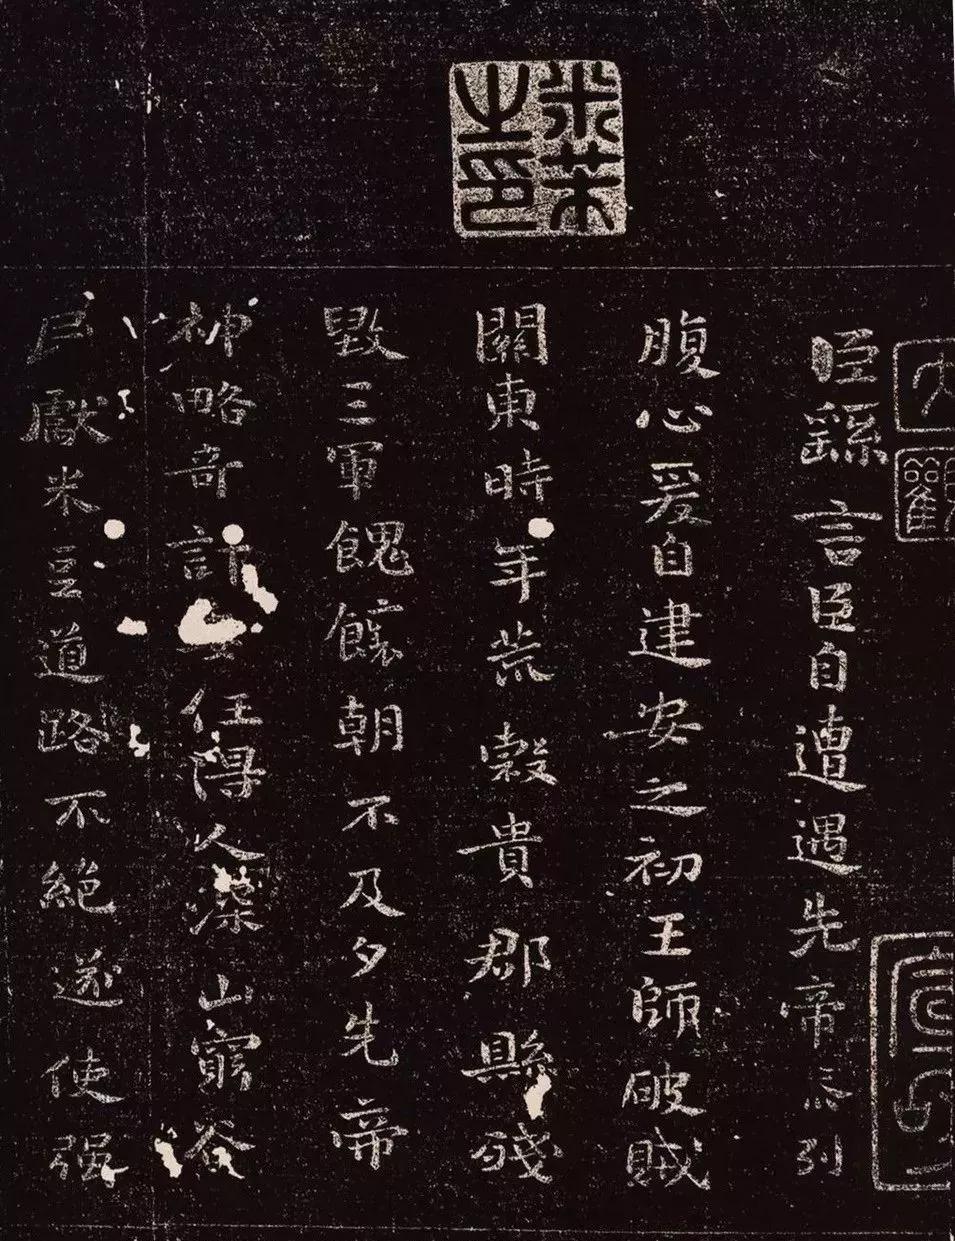 米芾之印
大觀
臣繇言臣自遭遇先帝忝列
腹心爰自建安之初王師破賊
關東時年荒穀貴郡縣殘
毀三軍餽饟朝不及夕先帝
神略奇計任得人深山窮谷
民獻米豆道路不絕遂使强